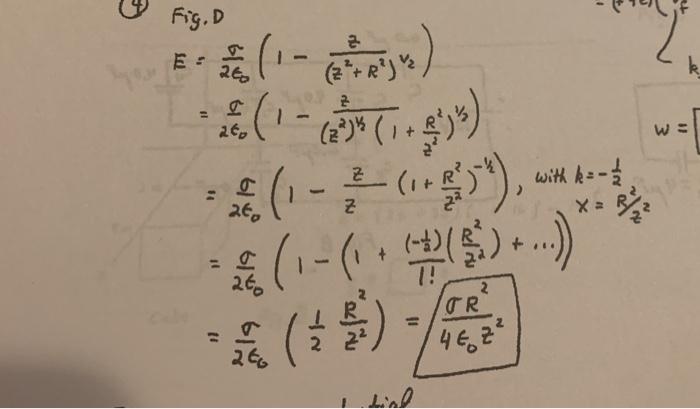 ④ Fig. D
E = σ/2ε₀ (1 - z/(z² + R²)^(1/2))
= σ/2ε₀ (1 - z/((z²)^(1/2) (1 + R²/z²)^(1/2)))
= σ/2ε₀ (1 - z/z (1 + R²/z²)^(-1/2)), with k = -1/2
x = R²/z²
= σ/2ε₀ (1 - (1 + (-1/2)/1! (R²/z²) + ...))
= σ/2ε₀ (1/2 R²/z²) = σR²/4ε₀z²
w =